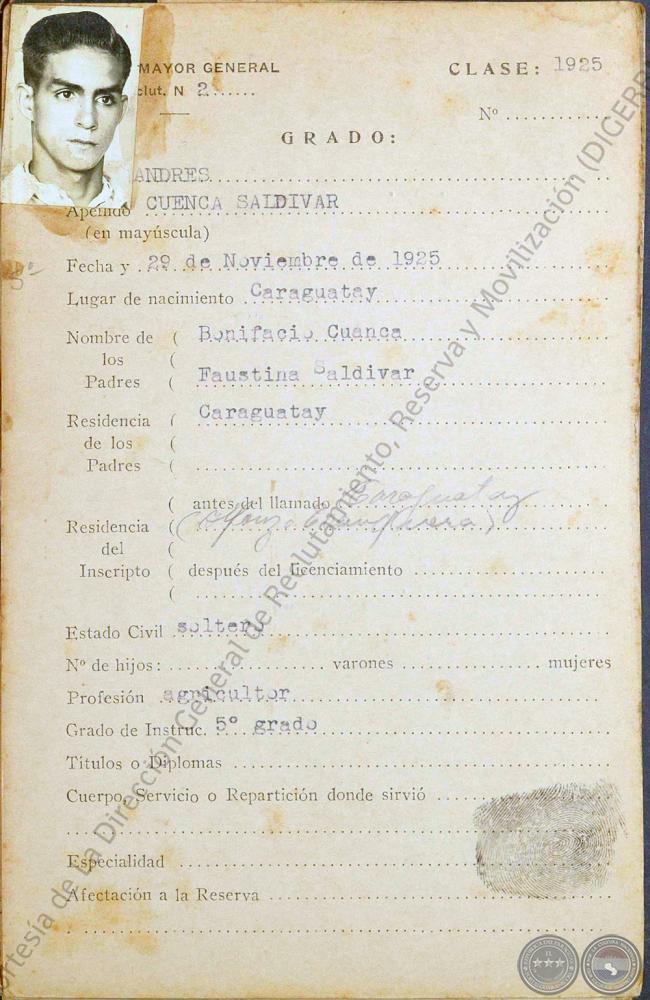 MAYOR GENERAL
CLASE: 1925
clut. N 2
Nº
GRADO:
ANDRES
Apellido CUENCA SALDIVAR
(en mayúscula)
Fecha y 29 de Noviembre de 1925
Lugar de nacimiento Caraguatay
Nombre de ( Bonifacio Cuanca
los (
Padres ( Faustina Saldivar
Residencia ( Caraguatay
de los (
Padres (
( antes del llamado Caraguatay
Residencia (
del (
Inscripto ( después del licenciamiento
(
Estado Civil soltero
Nº de hijos: varones mujeres
Profesión agricultor
Grado de Instruc. 5º grado
Títulos o Diplomas
Cuerpo, Servicio o Repartición donde sirvió
Especialidad
Afectación a la Reserva
ortesía de La Dirección General de Reclutamiento, Reserva y Movilización (DIGERR